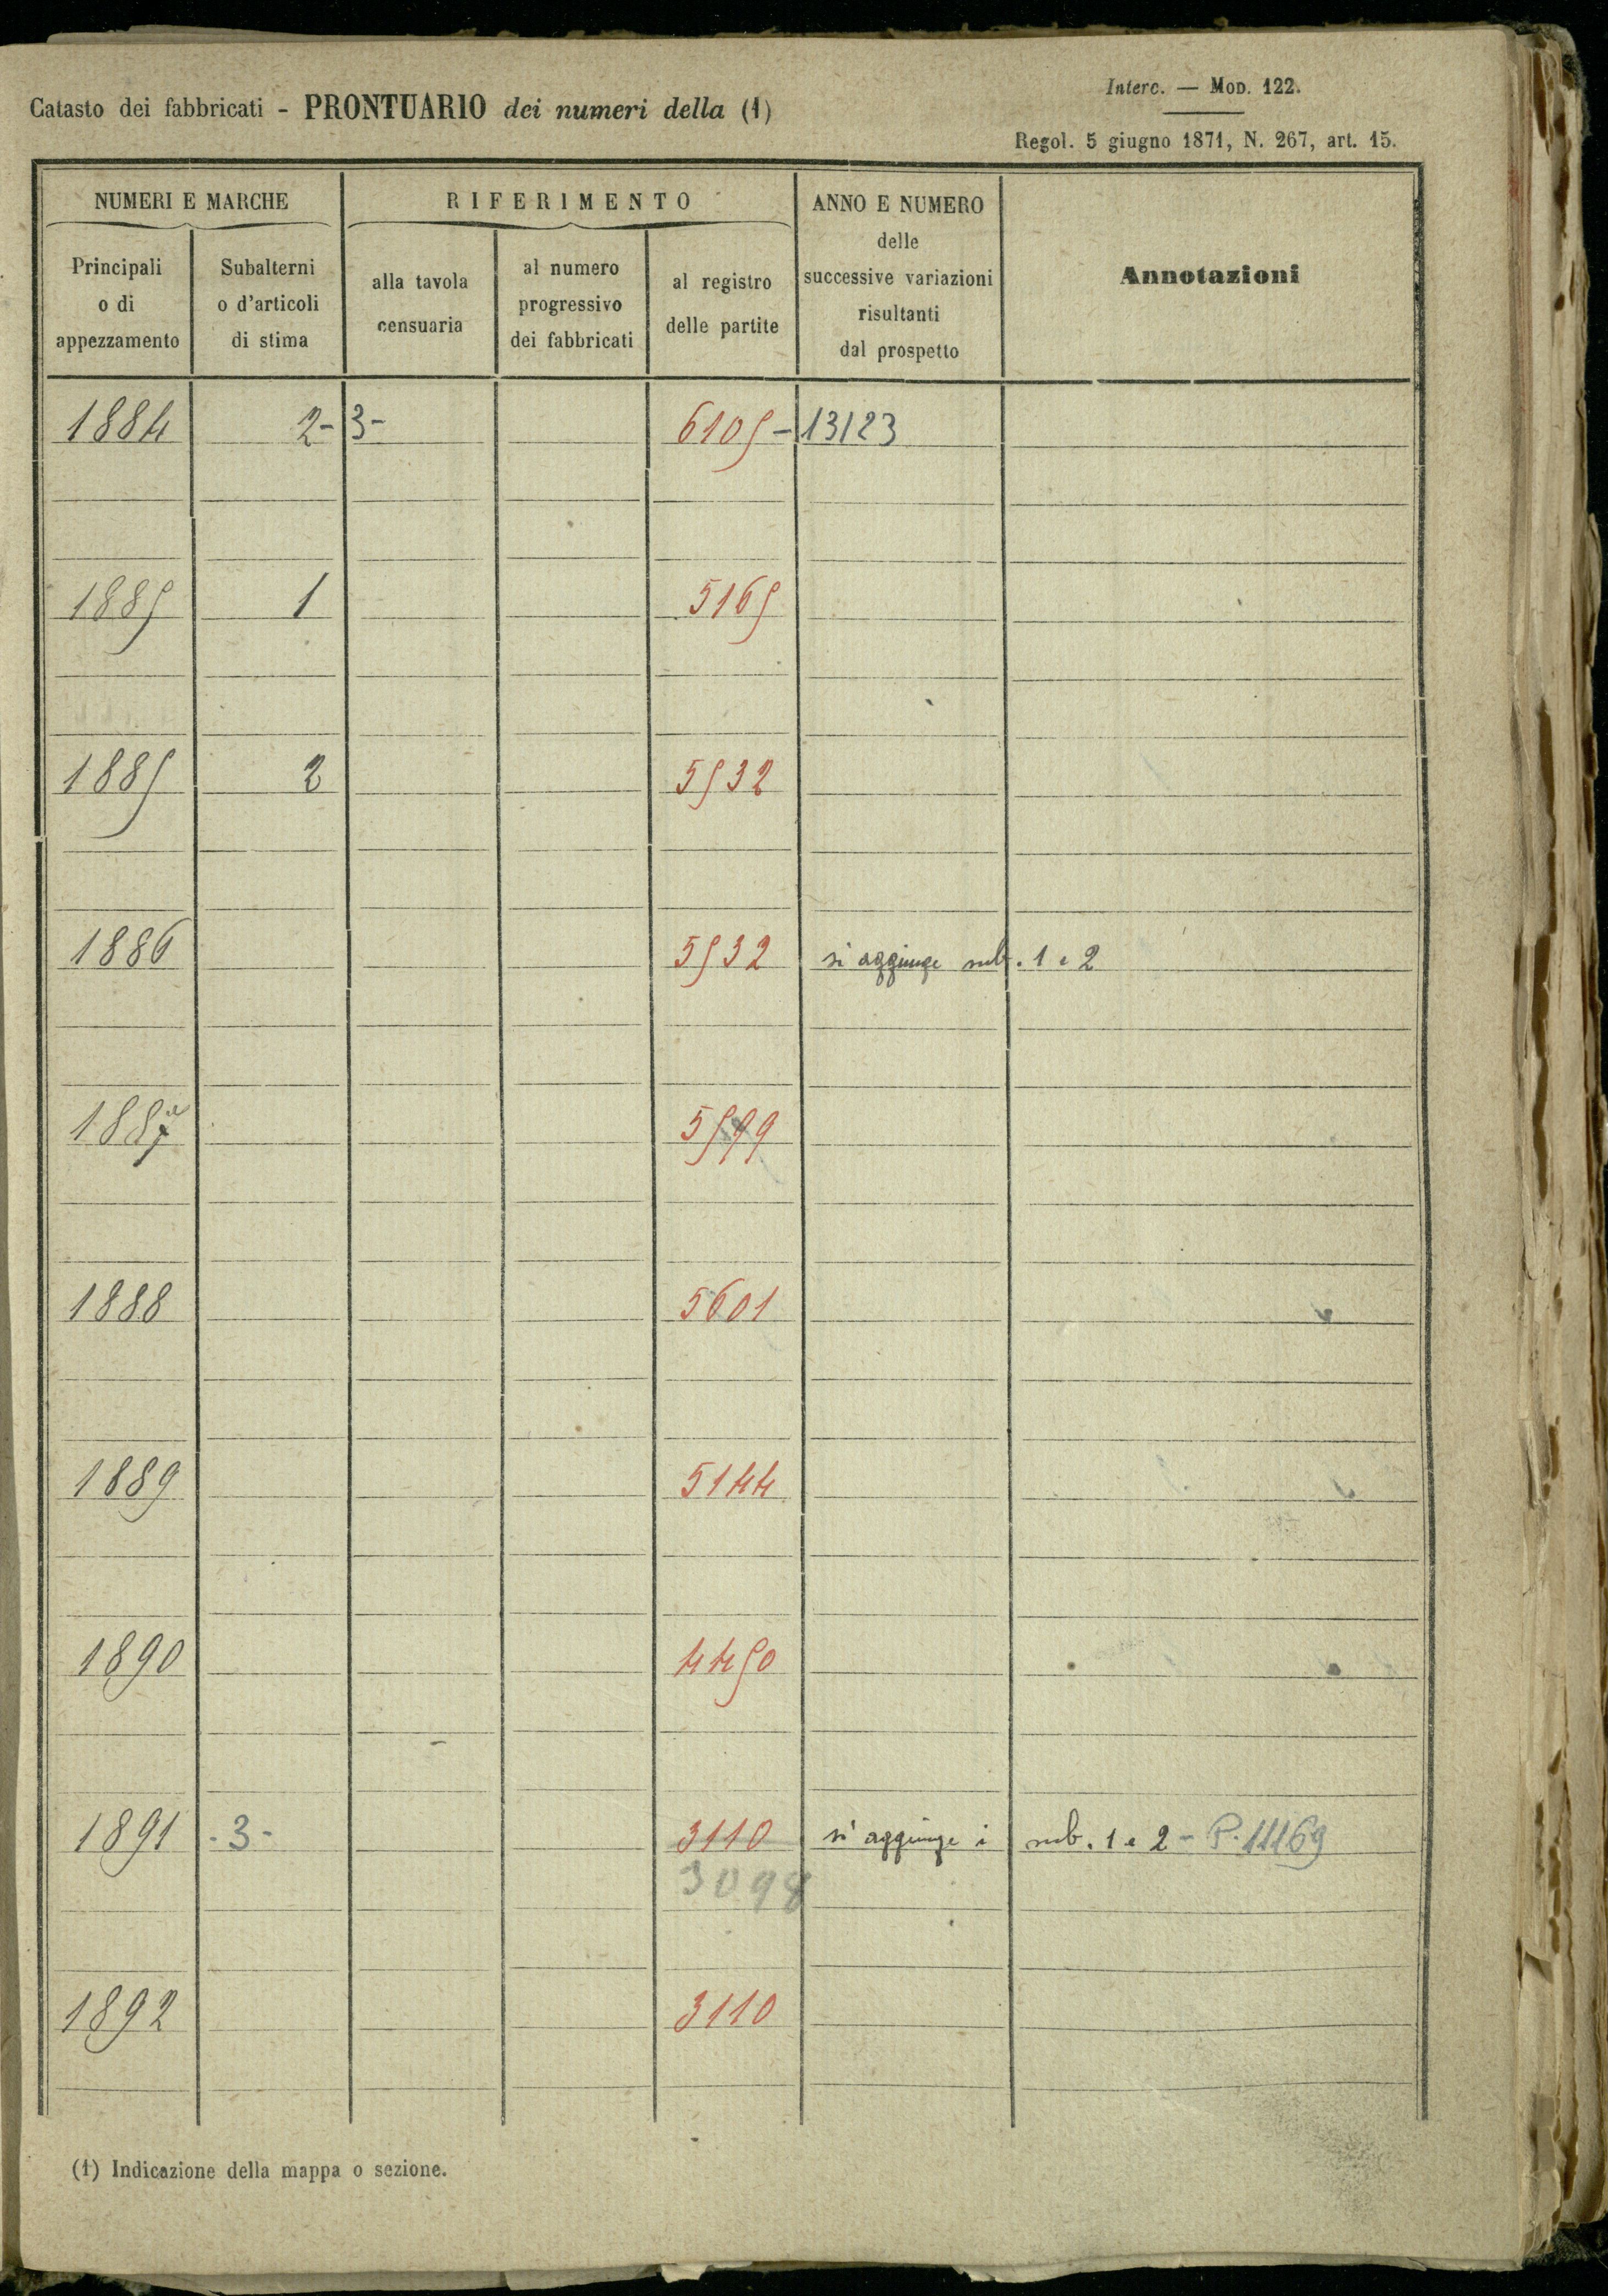 Interc. — Mod. 122.
Catasto dei fabbricati - PRONTUARIO dei numeri della (1)
Regol. 5 giugno 1871, N. 267, art. 15.
NUMERI E MARCHE
RIFERIMENTO
ANNO E NUMERO
delle
successive variazioni
risultanti
dal prospetto
Annotazioni
Principali
o di
appezzamento
Subalterni
o d'articoli
di stima
alla tavola
censuaria
al numero
progressivo
dei fabbricati
al registro
delle partite
1884 2- 3- 6105 - 13123
1885 1 5165
1885 2 5532
1886 5532 si aggiunge sub. 1 e 2
1887 5599
1888 5601
1889 5144
1890 4450
1891 -3- 3110 si aggiunge i sub. 1 e 2 - P. 11169
3098
1892 3110
(1) Indicazione della mappa o sezione.